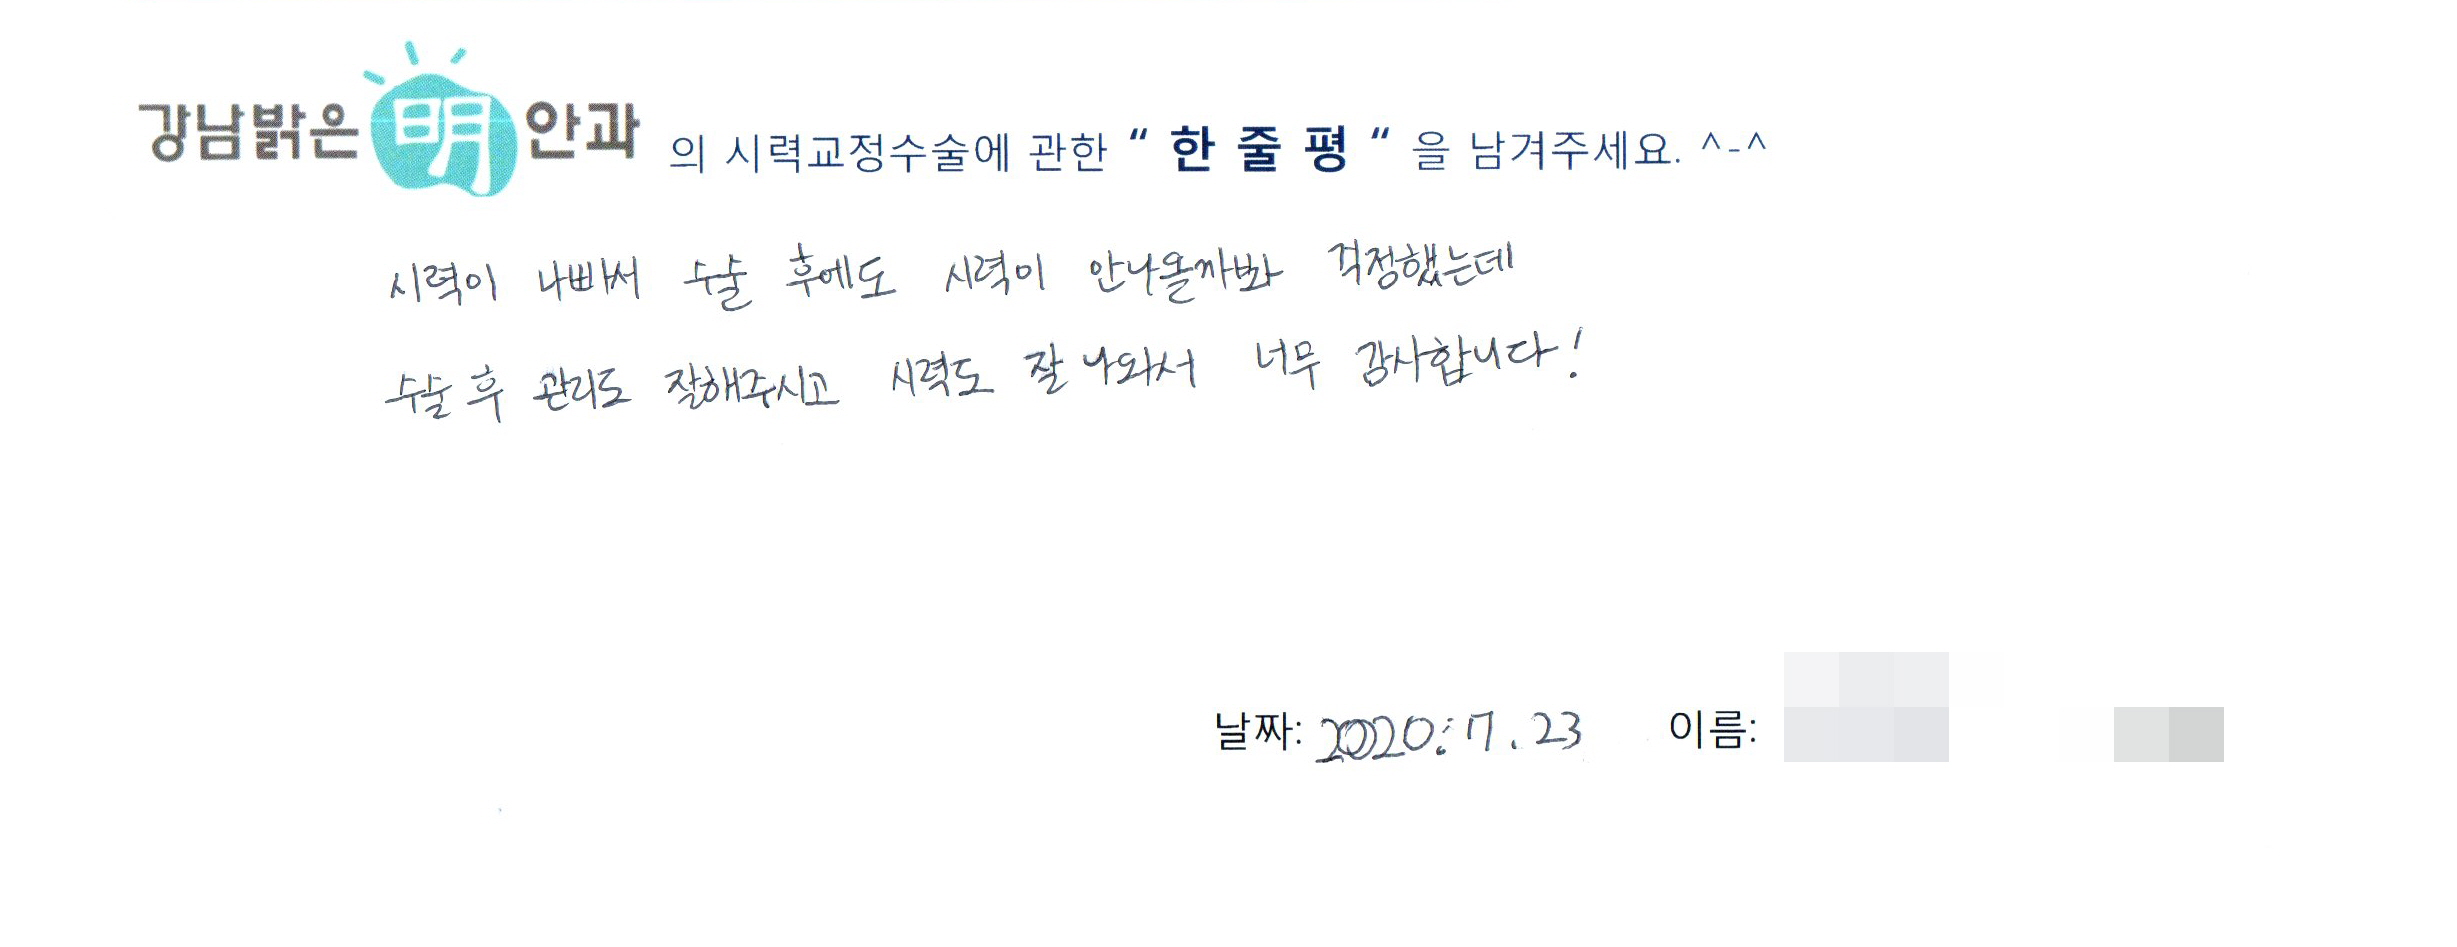 강남밝은 明 안과 의 시력교정수술에 관한 “ 한 줄 평 “ 을 남겨주세요. ^-^
시력이 나빠서 수술 후에도 시력이 안나올까봐 걱정했는데
수술 후 관리도 잘해주시고 시력도 잘 나와서 너무 감사합니다!
날짜: 2020. 7. 23 이름: